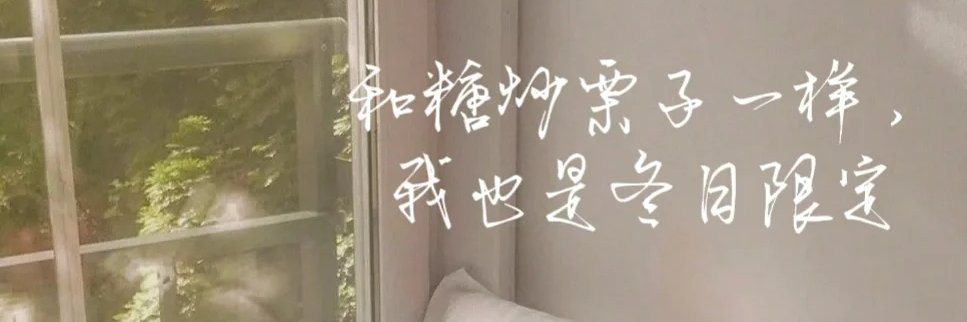 和糖炒栗子一样，
我也是冬日限定